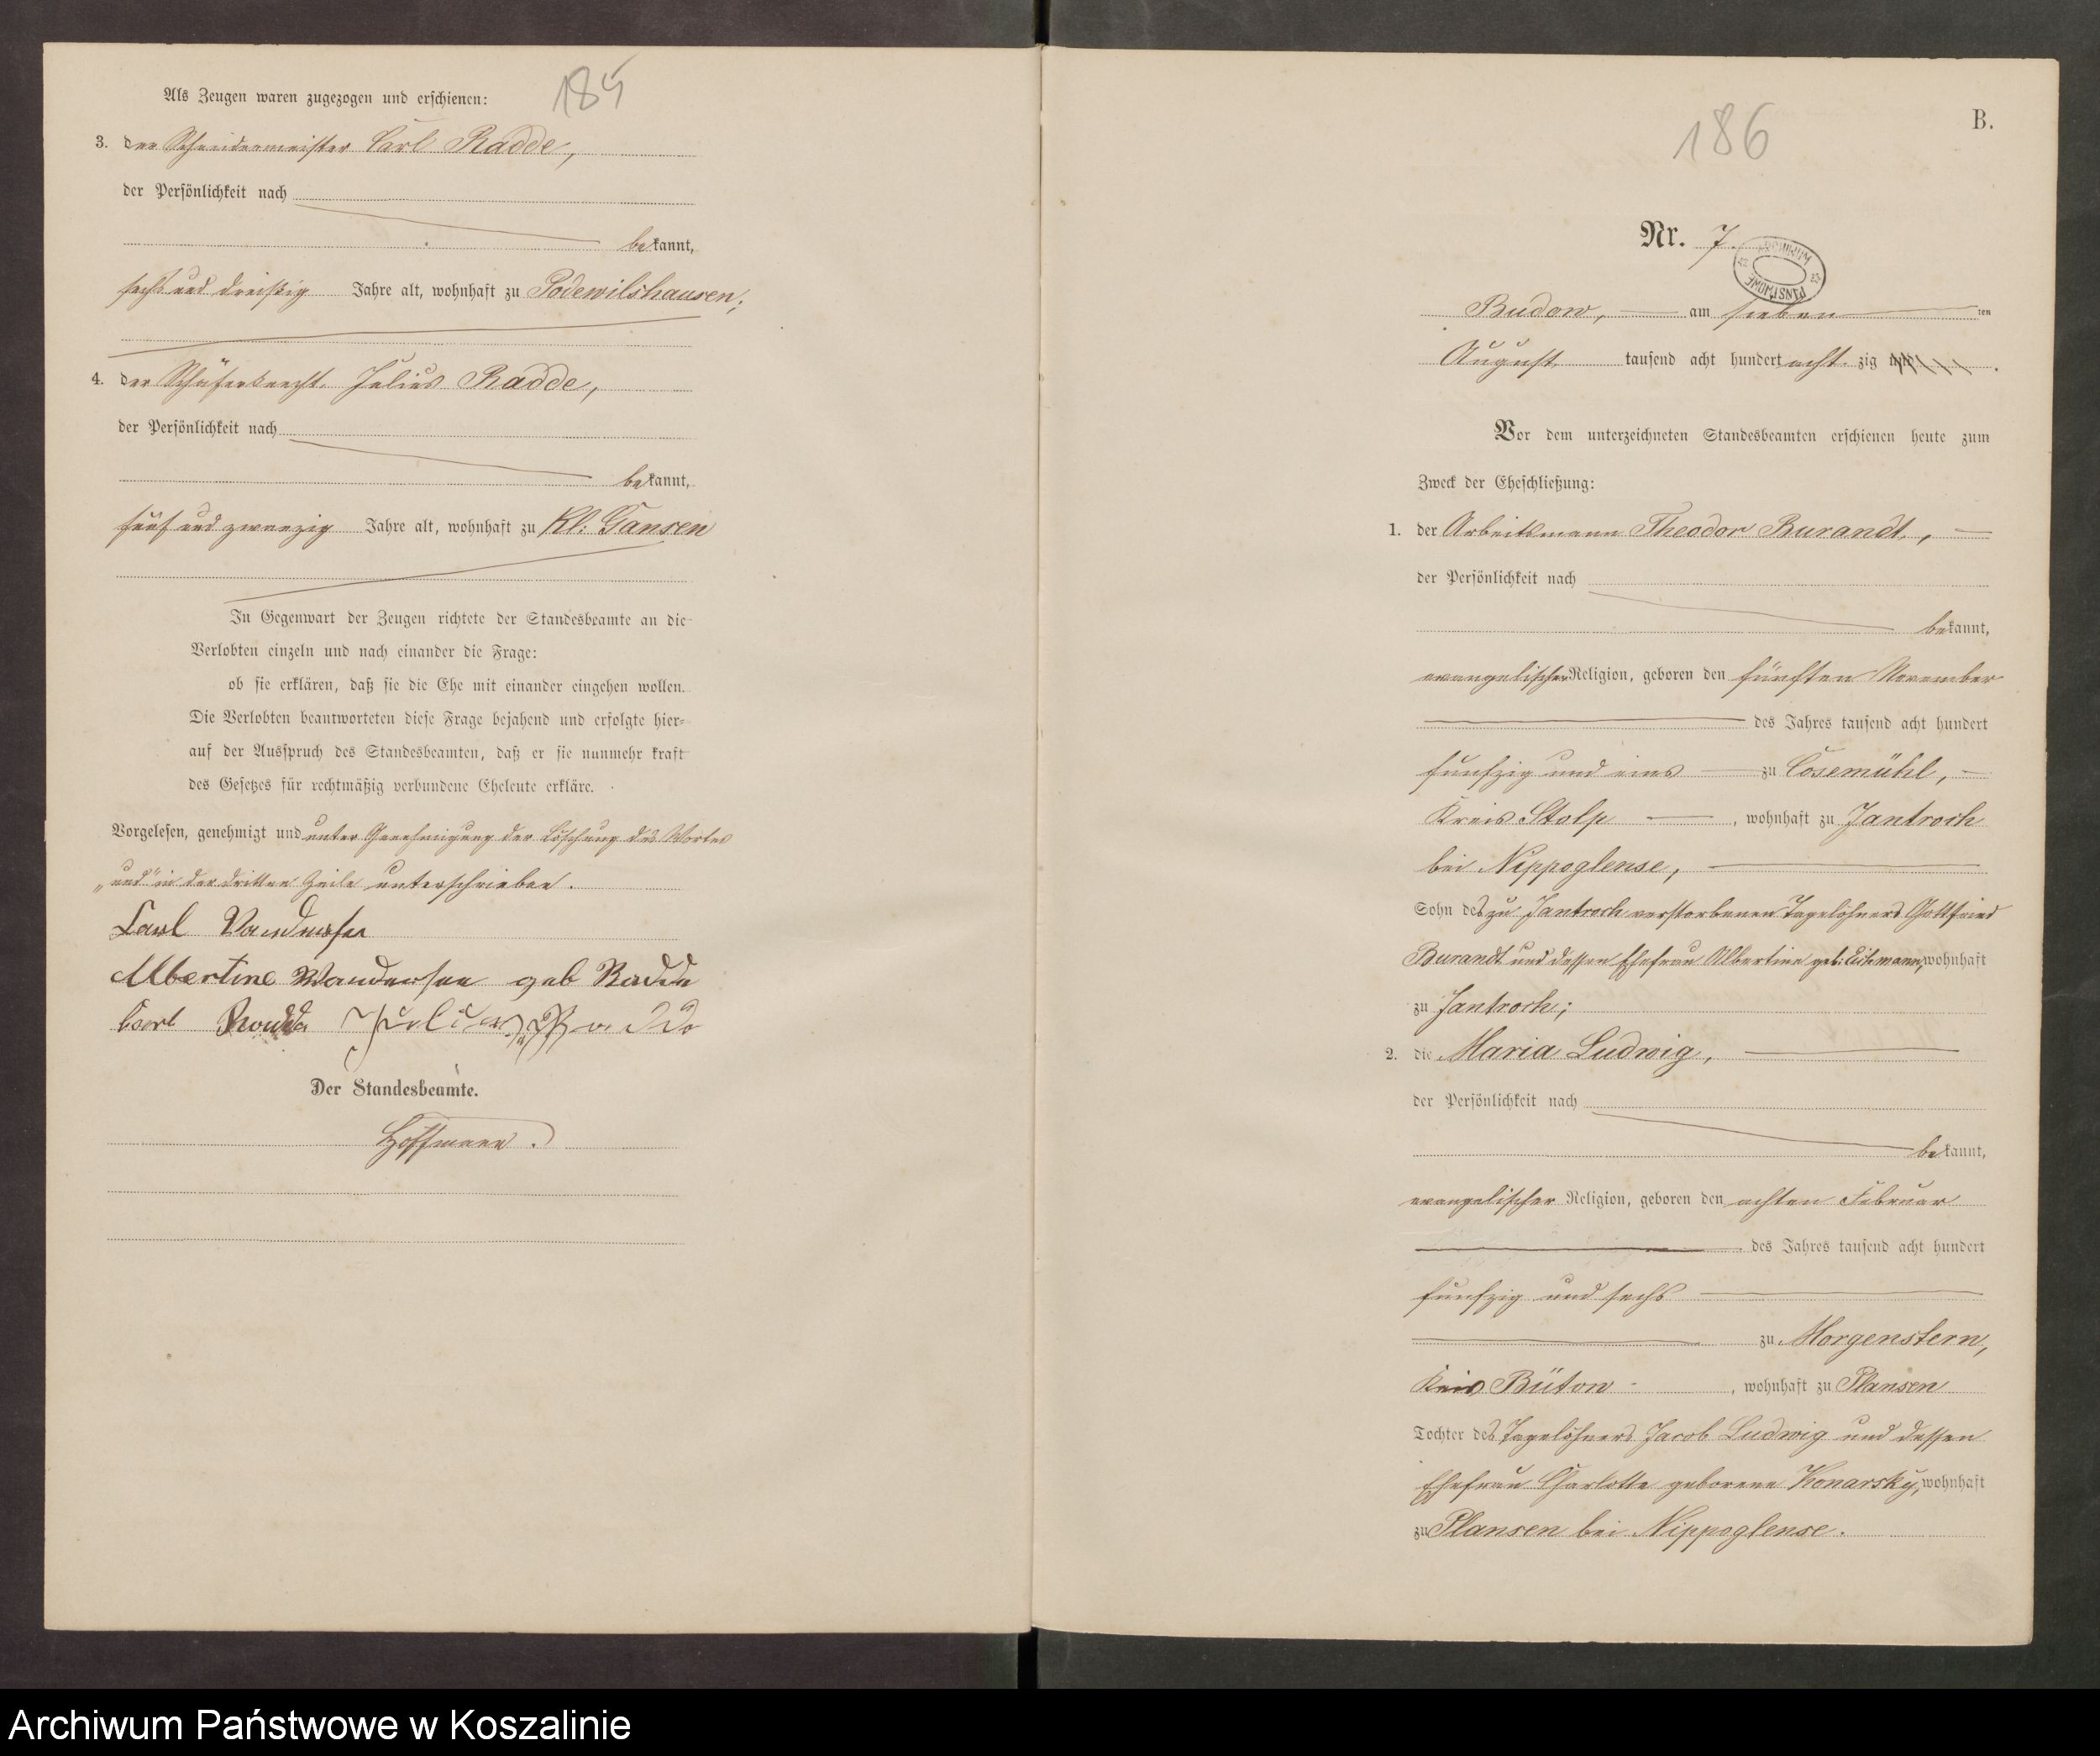 185
Als Zeugen waren zugezogen und erschienen:
3. der Schneidermeister Carl Radde,
der Persönlichkeit nach
bekannt,
sechs und dreißig Jahre alt, wohnhaft zu Podewilshausen;
4. der Schäferknecht Julius Radde,
der Persönlichkeit nach
bekannt,
fünf und zwanzig Jahre alt, wohnhaft zu Kl: Gansen
In Gegenwart der Zeugen richtete der Standesbeamte an die
Verlobten einzeln und nach einander die Frage:
ob sie erklären, daß sie die Ehe mit einander eingehen wollen.
Die Verlobten beantworteten diese Frage bejahend und erfolgte hier-
auf der Ausspruch des Standesbeamten, daß er sie nunmehr kraft
des Gesetzes für rechtmäßig verbundene Eheleute erkläre.
Vorgelesen, genehmigt und unter Genehmigung der Löschung des Wortes
„und" in der dritten Zeile unterschrieben.
Carl Wandersee
Albertine Wandersee geb Radde
Carl Radde Julius Radde
Der Standesbeamte.
Hoffmann.
186
B.
Nr. 7.
ARCHIWUM PAŃSTWOWE
Budow, am sieben ten
August tausend acht hundert acht zig und.
Vor dem unterzeichneten Standesbeamten erschienen heute zum
Zweck der Eheschließung:
1. der Arbeitsmann Theodor Burandt,
der Persönlichkeit nach
bekannt,
evangelischer Religion, geboren den fünften November
des Jahres tausend acht hundert
funfzig und eins zu Cosemühl,
Kreis Stolp, wohnhaft zu Jantroch
bei Nippoglense,
Sohn des zu Jantroch verstorbenen Tagelöhners Gottfried
Burandt und dessen Ehefrau Albertine geb: Eichmann, wohnhaft
zu Jantroch;
2. die Maria Ludwig,
der Persönlichkeit nach
bekannt,
evangelischer Religion, geboren den achten Februar
des Jahres tausend acht hundert
funfzig und sechs
zu Morgenstern,
Kreis Bütow, wohnhaft zu Plansen
Tochter des Tagelöhners Jacob Ludwig und dessen
Ehefrau Charlotte geborene Konarsky, wohnhaft
zu Plansen bei Nippoglense.
Archiwum Państwowe w Koszalinie